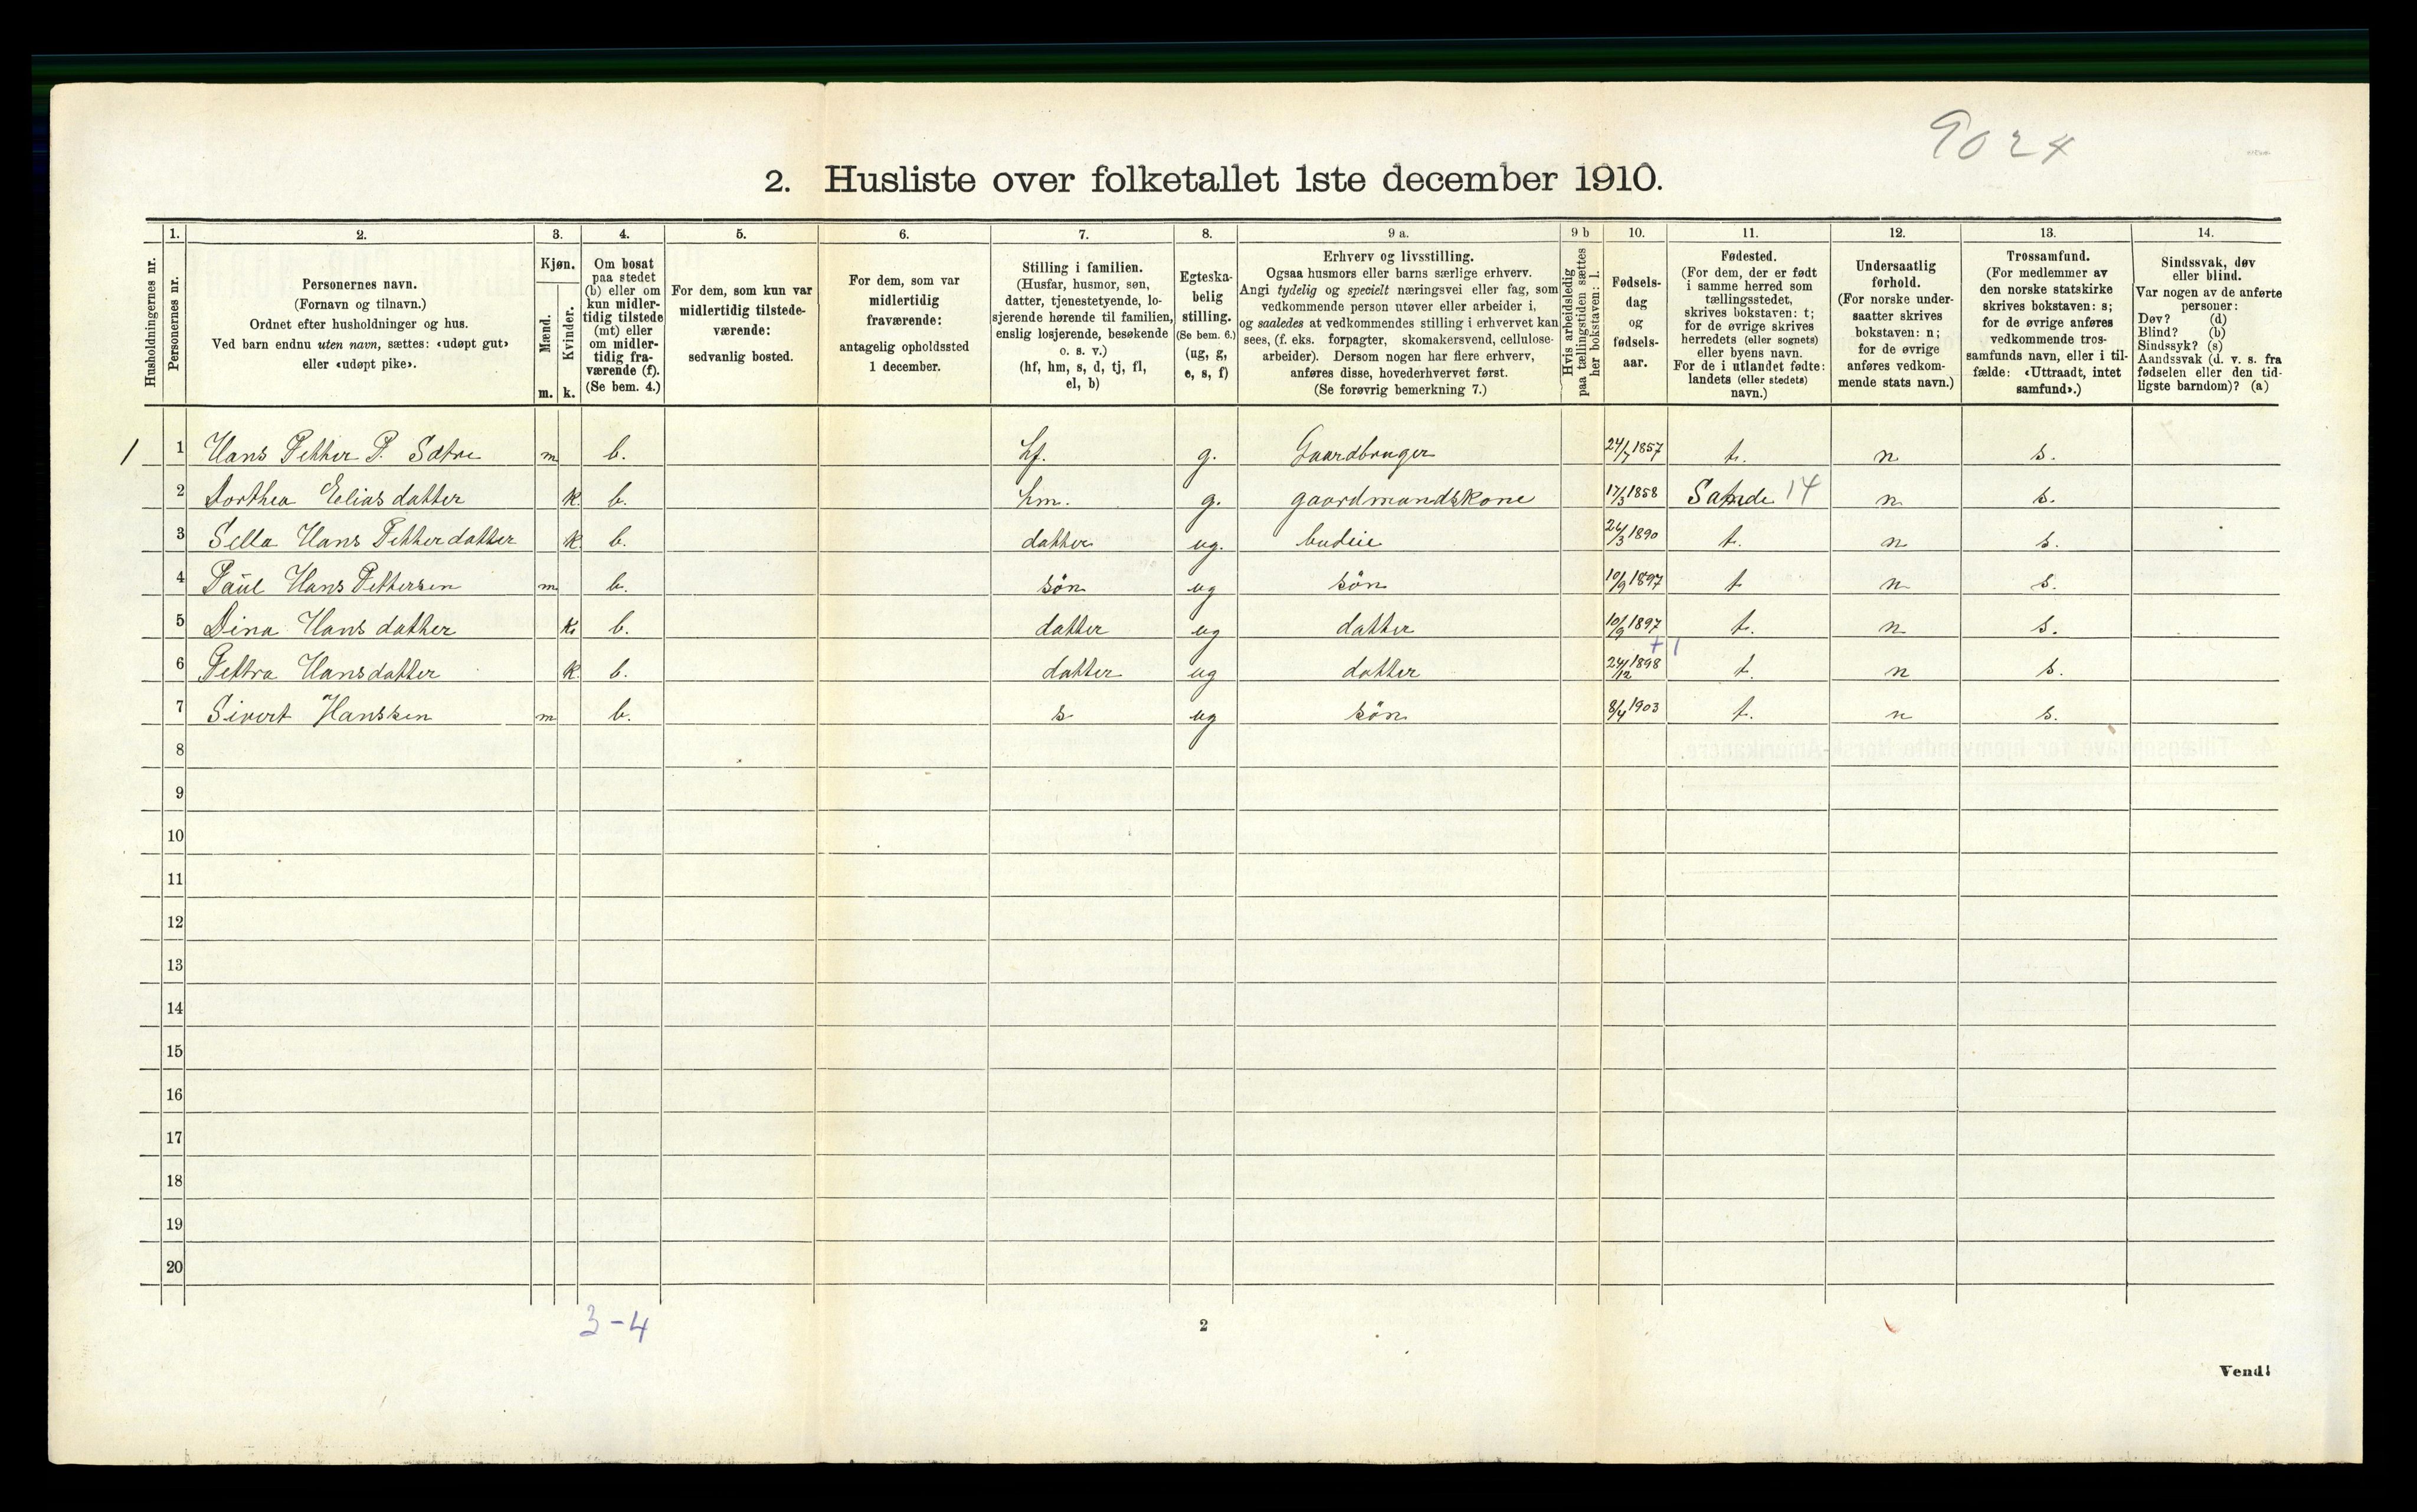 9024
2. Husliste over folketallet 1ste december 1910.
Husholdningernes nr.
1.
Personernes nr.
2.
Personernes navn.
(Fornavn og tilnavn.)
Ordnet efter husholdninger og hus.
Ved barn endnu uten navn, sættes: «udøpt gut»
eller «udøpt pike».
3.
Kjøn.
Mænd.
Kvinder.
m.
k.
4.
Om bosat
paa stedet
(b) eller om
kun midler-
tidig tilstede
(mt) eller
om midler-
tidig fra-
værende (f).
(Se bem. 4.)
5.
For dem, som kun var
midlertidig tilstede-
værende:
sedvanlig bosted.
6.
For dem, som var
midlertidig
fraværende:
antagelig opholdssted
1 december.
7.
Stilling i familien.
(Husfar, husmor, søn,
datter, tjenestetyende, lo-
sjerende hørende til familien,
enslig losjerende, besøkende
o. s. v.)
(hf, hm, s, d, tj, fl,
el, b)
8.
Egteska-
belig
stilling.
(Se bem. 6.)
(ug, g,
e, s, f)
9 a.
Erhverv og livsstilling.
Ogsaa husmors eller barns særlige erhverv.
Angi tydelig og specielt næringsvei eller fag, som
vedkommende person utøver eller arbeider i,
og saaledes at vedkommendes stilling i erhvervet kan
sees, (f. eks. forpagter, skomakersvend, cellulose-
arbeider). Dersom nogen har flere erhverv,
anføres disse, hovederhvervet først.
(Se forøvrig bemerkning 7.)
9 b
Hvis arbeidsledig
paa tællingstiden sættes
her bokstaven: l.
10.
Fødsels-
dag
og
fødsels-
aar.
11.
Fødested.
(For dem, der er født
i samme herred som
tællingsstedet,
skrives bokstaven: t;
for de øvrige skrives
herredets (eller sognets)
eller byens navn.
For de i utlandet fødte:
landets (eller stedets)
navn.)
12.
Undersaatlig
forhold.
(For norske under-
saatter skrives
bokstaven: n;
for de øvrige
anføres vedkom-
mende stats navn.)
13.
Trossamfund.
(For medlemmer av
den norske statskirke
skrives bokstaven: s;
for de øvrige anføres
vedkommende tros-
samfunds navn, eller i til-
fælde: «Uttraadt, intet
samfund».)
14.
Sindssvak, døv
eller blind.
Var nogen av de anførte
personer:
Døv? (d)
Blind? (b)
Sindssyk? (s)
Aandssvak (d. v. s. fra
fødselen eller den tid-
ligste barndom)? (a)
1 1 Hans Petter P. Sætre m b. hf. g. Gaardbruger 24/7 1857 t. n s.
2 Dorthea Eliasdatter k. b. hm. g. gaardmandskone 17/3 1858 Sande 14 n s.
3 Sella Hans Petterdatter k b. datter ug. budeie 26/3 1890 t. n s.
4 Paul Hans Pettersen m b. søn ug søn 10/9 1897 t n s.
5 Dina Hansdatter k. b. datter ug datter 10/9 1897 t. n s.
+ 1
6 Pettra Hansdatter k. b. datter ug datter 24/12 1898 t. n s.
7 Sivert Hanssen m b. s ug søn 8/4 1903 t. n s.
8
9
10
11
12
13
14
15
16
17
18
19
20
3-4
2
Vend!